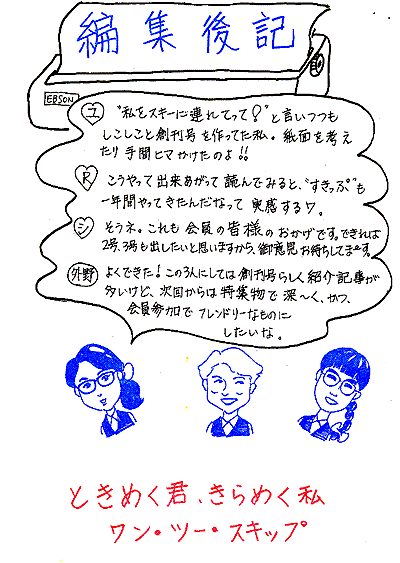 編集後記
EBSON
ユ "私をスキーに連れてって!"と言いつつも
しこしこと創刊号を作ってた私。紙面を考え
たり手間ヒマかけたのよ!!
R こうやって出来あがって読んでみると、"すきっぷ"も
一年間やってきたんだなって実感する♡。
シ そうネ。これも会員の皆様のおかげです。できれば
2号、3号も出したいと思いますから、御意見お待ちしてまーす。
外野 よくできた!この3人にしては創刊号らしく紹介記事が
多いけど、次回からは特集物で深〜く、かつ、
会員参加で フレンドリーなものに
したいな。
ときめく君、きらめく私
ワン・ツー・スキップ